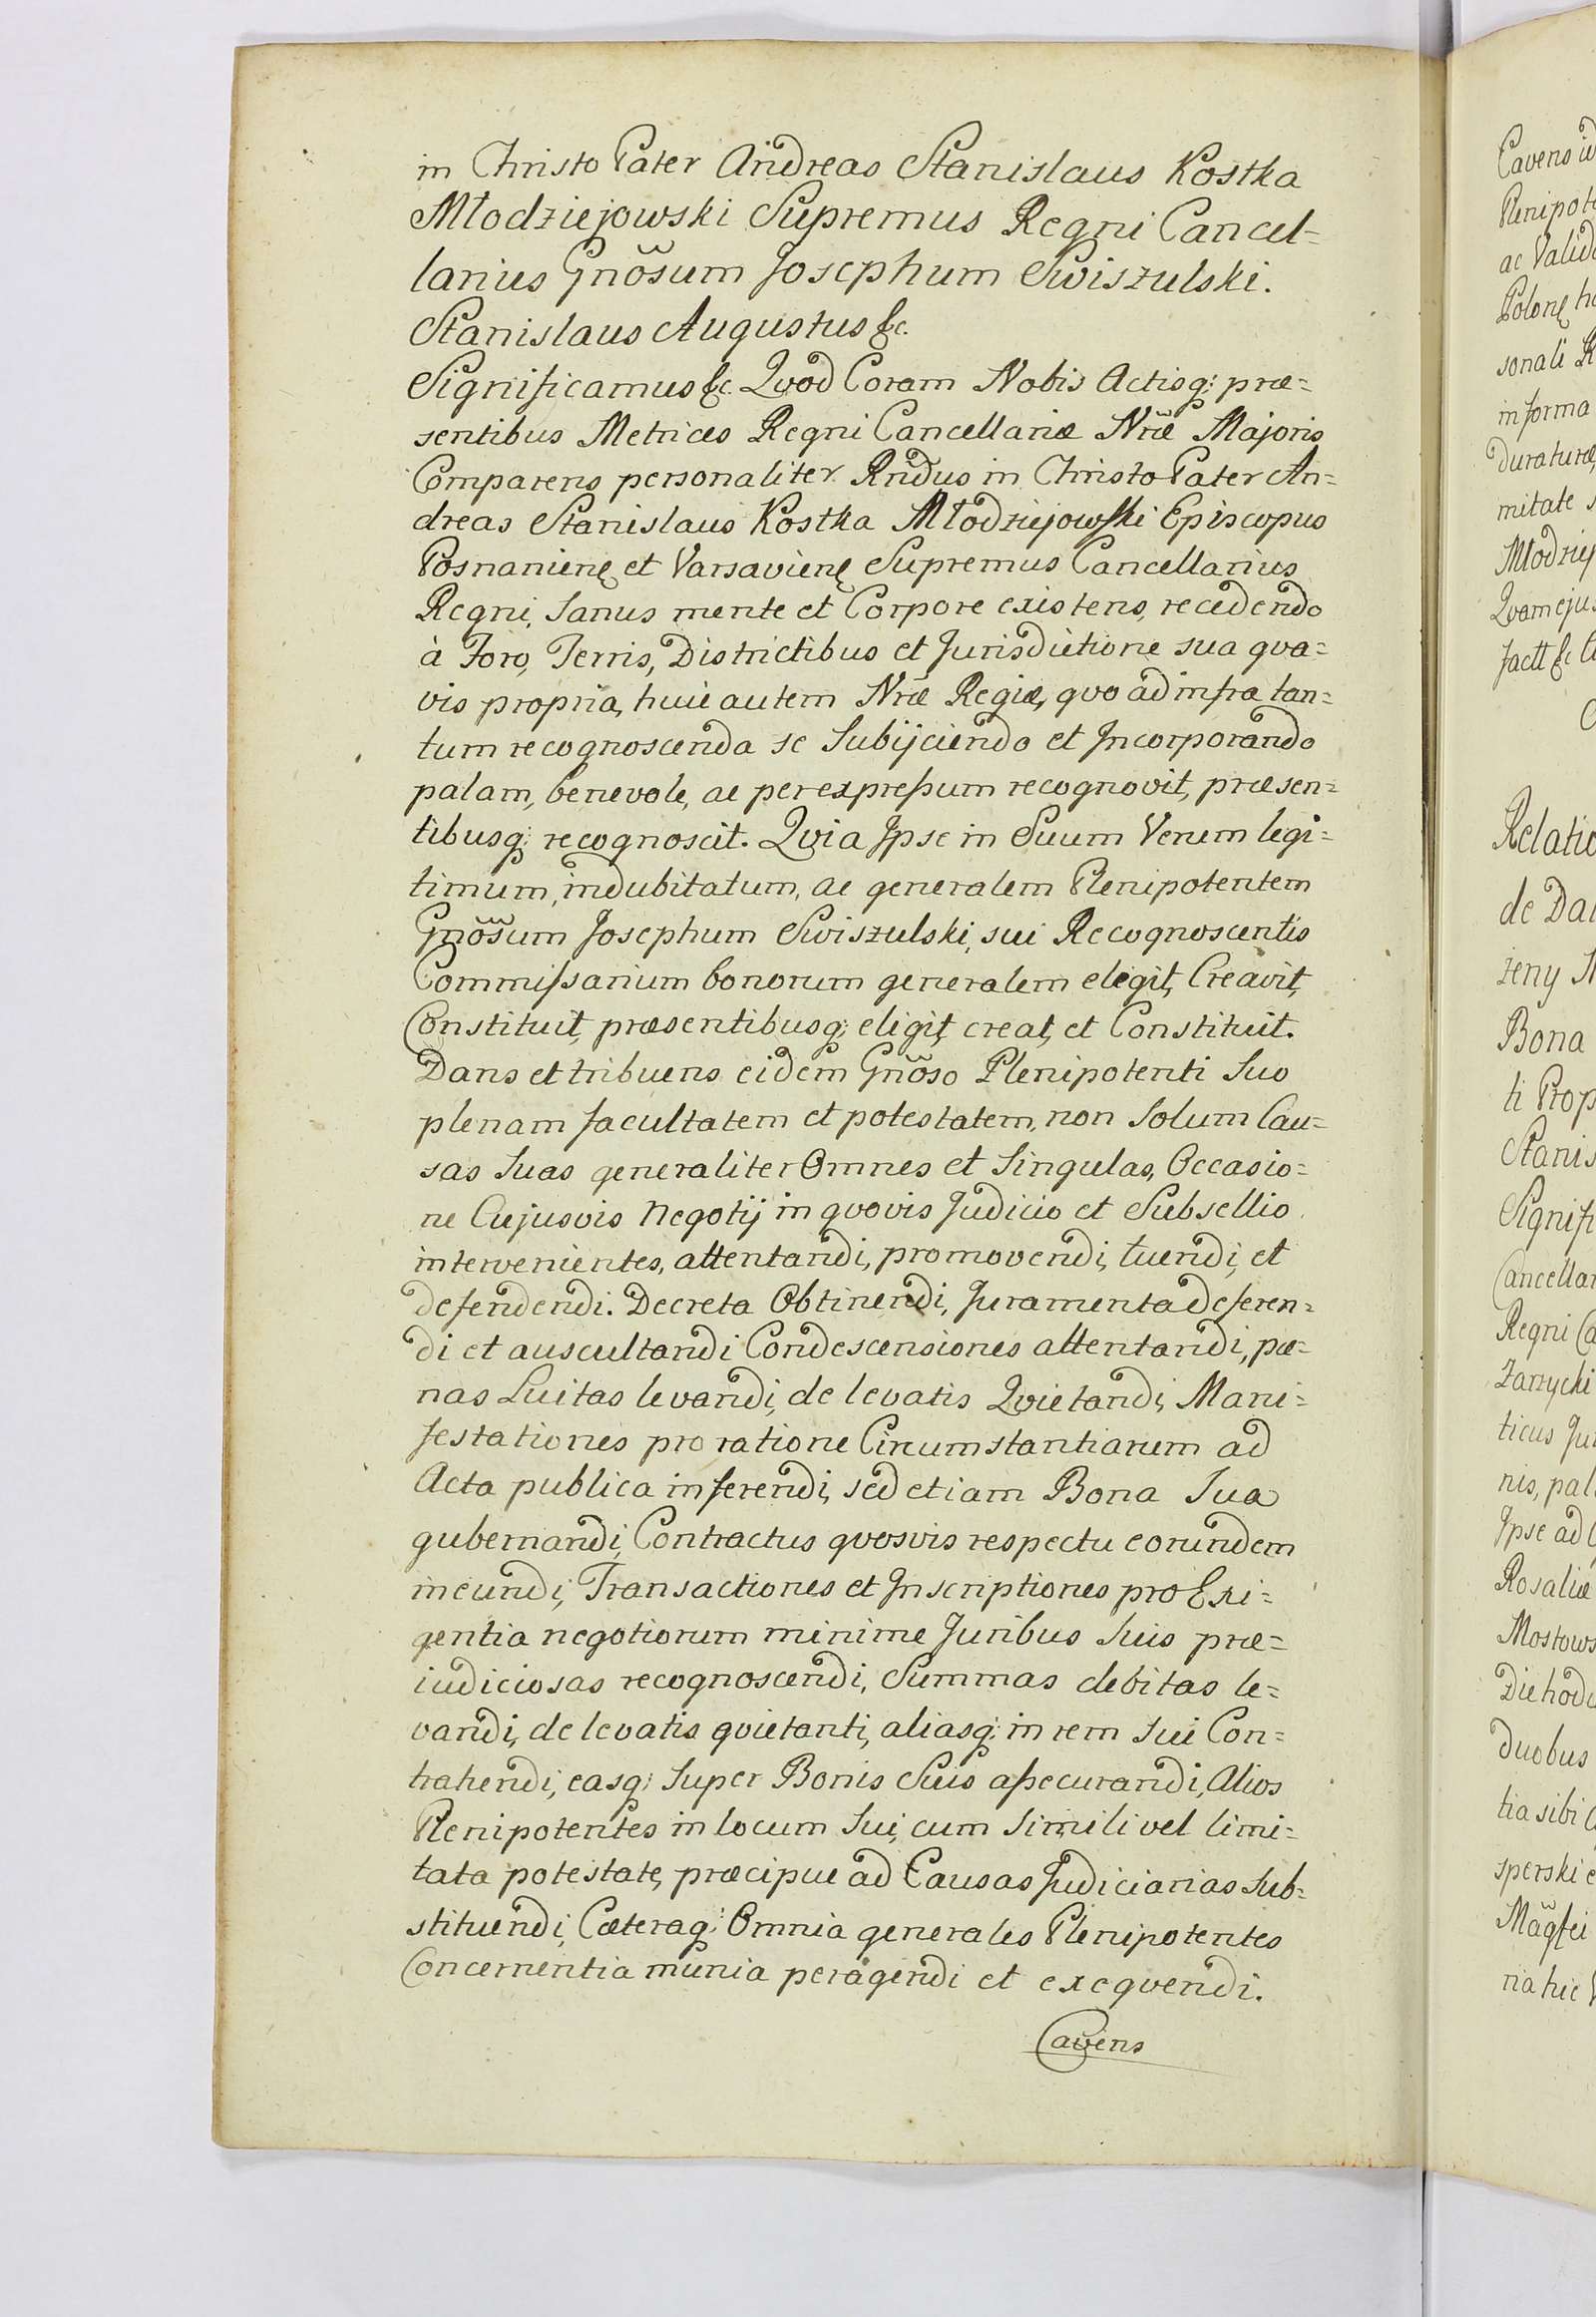 in Christo Pater Andreas Stanislaus Kostka
Młodziejowski Supremus Regni Cancel=
larius Gnõsum Josephum Swiszulski.
Stanislaus Augustus &c.
Significamus &c. Qvod Coram Nobis Actisq; præ=
sentibus Metrices Regni Cancellariæ Nræ Majoris
Comparens personaliter Rndus in Christo Pater An=
dreas Stanislaus Kostka Młodziejowski Episcopus
Posnanienę et Varsavienę Supremus Cancellarius
Regni, Sanus mente et Corpore existens, recedendo
à Foro, Terris, Districtibus et Jurisdictione sua qva=
vis propria, huic autem Nræ Regiæ, qvo ad infra tan=
tum recognoscenda se Subijciendo et Incorporando
palam, benevole, ac per expreßum recognovit, præsen=
tibusq; recognoscit. Qvia Ipse in Suum Verum legi=
timum, indubitatum, ac generalem Plenipotentem
Gnõsum Josephum Swiszulski, sui Recognoscentis
Commissarium bonorum generalem elegit, Creavit,
Constituit, præsentibusq; eligit, creat, et Constituit.
Dans et tribuens eidem Gnõso Plenipotenti Suo
plenam facultatem et potestatem, non Solum Cau=
sas Suas generaliter Omnes et Singulas, Occasio=
ne Cujusvis Negotij in qvovis Judicio et Subsellio
intervenientes, attentandi, promovendi, tuendi, et
defendendi. Decreta Obtinendi, Juramenta deferen=
di et auscultandi Condescensiones attentandi, pæ=
nas Luitas levandi, de levatis Qvietandi, Mani=
festationes pro ratione Circumstantiarum ad
Acta publica inferendi, sed etiam Bona Sua
gubernandi, Contractus qvosvis respectu eorundem
ineundi, Transactiones et Inscriptiones pro Exi=
gentia negotiorum minime Juribus Suis præ=
iudiciosas recognoscendi, Summas debitas le=
vandi, de levatis qvietanti, aliasq; in rem Sui Con=
trahendi, easq; Super Bonis Suis aßecurandi, Alios
Plenipotentes in locum Sui, cum Simili vel limi=
tata potestate, præcipue ad Causas Judiciarias Sub=
stituendi, Cæteraq; Omnia generales Plenipotentes
Concernentia munia peragendi et exeqvendi.
Cavens
Cavens
Plenipot
ac Valid
Polonę
sonali R
in forma
duraturæ,
mitate s
Młodziej
Qvam ejus
factt &c
Relatio
de Da
żeny
Bona
ti Prop
Stanis
Signifi
Cancellar
Regni Ca
Zarzycki
ticus Jur
nis, pal
Ipse ad
Rosaliæ
Mostows
Die hod
duobus
tia sibi
sperski
Mãgfci
ria hic